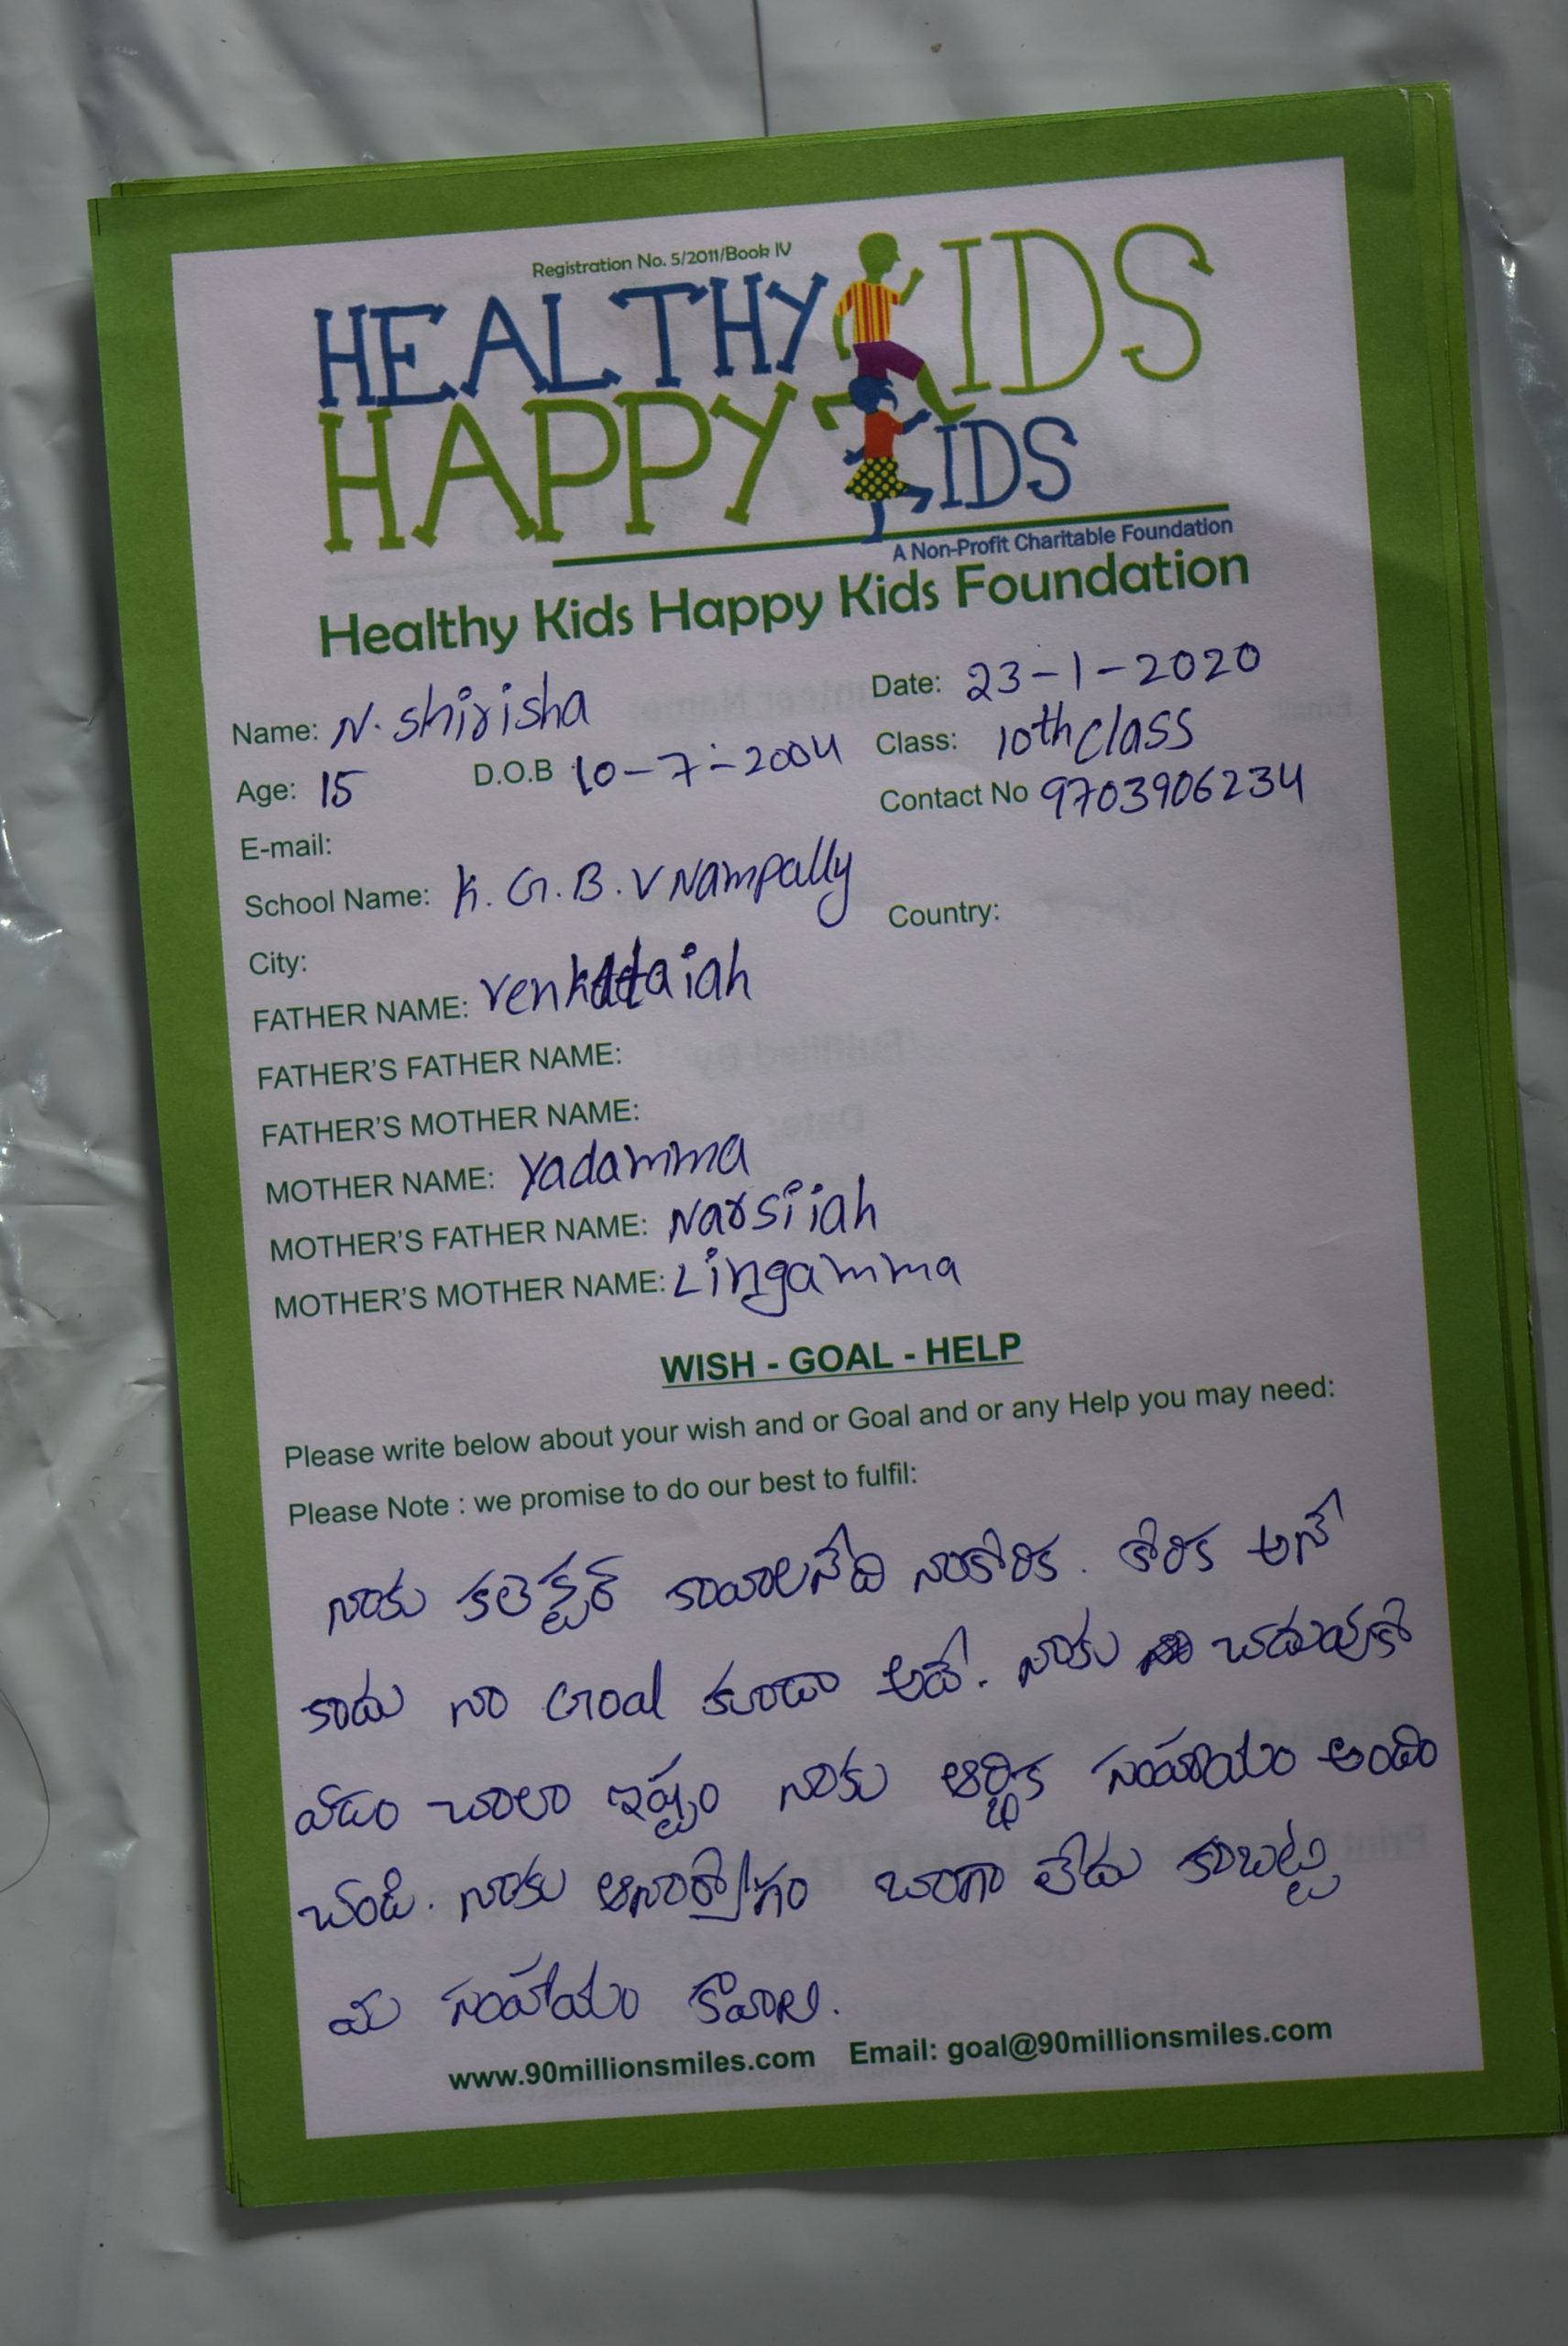 Registration No. 5/2011/Book IV
HEALTHY KIDS
HAPPY KIDS
A Non-Profit Charitable Foundation
Healthy Kids Happy Kids Foundation
Name: N. Shirisha Date: 23-1-2020
Age: 15 D.O.B 10-7-2004 Class: 10th class
E-mail: Contact No 9703906234
School Name: K.G.B.V Nampally
City: Country:
FATHER NAME: Venkataiah
FATHER'S FATHER NAME:
FATHER'S MOTHER NAME:
MOTHER NAME: Yadamma
MOTHER'S FATHER NAME: Narsiiah
MOTHER'S MOTHER NAME: Lingamma
WISH - GOAL - HELP
Please write below about your wish and or Goal and or any Help you may need:
Please Note : we promise to do our best to fulfil:
నాకు కలెక్టర్ కావాలనేది నాకోరిక. కోరిక అనే
కాదు నా Goal కూడా అదే. నాకు చదువుకో
వడం చాలా ఇష్టం నాకు ఆర్థిక సంహాయం అందిం
చండి. నాకు ఆనారోగ్గం బాగా లేదు కాబట్టి
మీ సంహాయం కావాలి.
www.90millionsmiles.com Email: goal@90millionsmiles.com